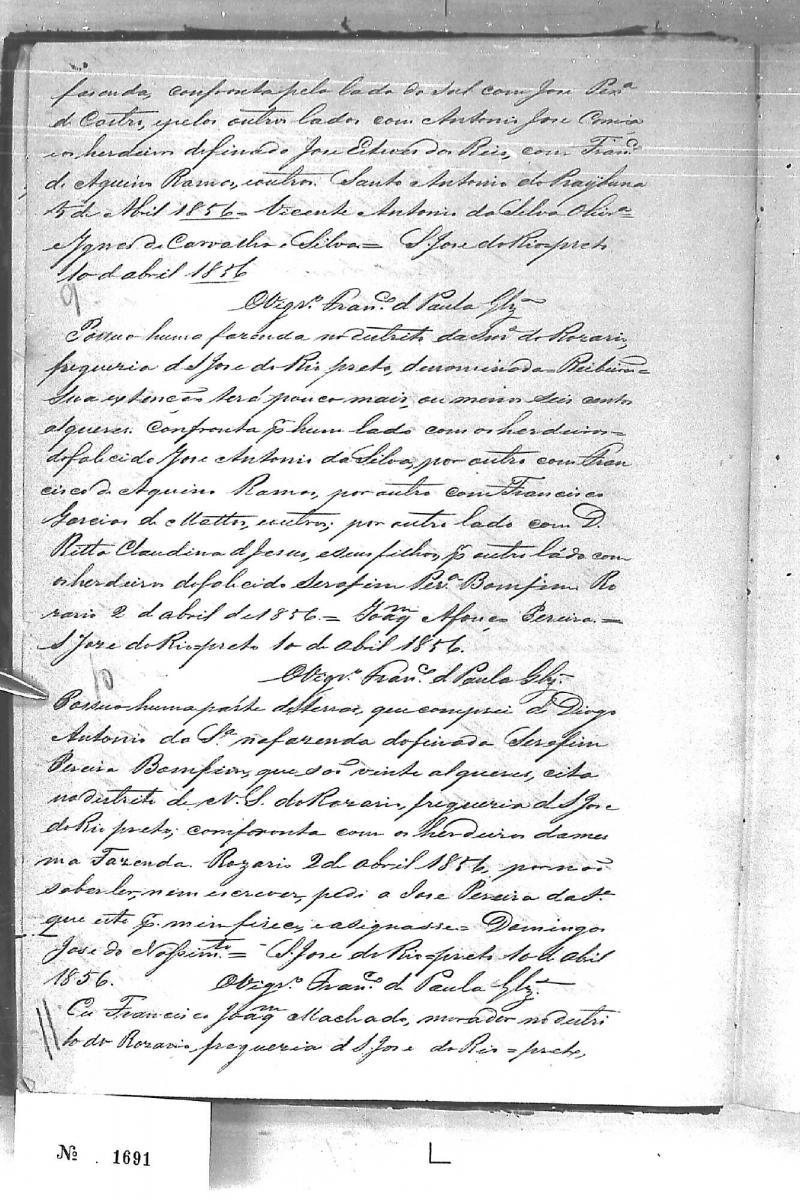 fasenda, confronta pelo lado do sul com Jose Perª
d Castro, e pelos outros lados com Antonio Jose Correia
e os herdeiros do finado Jose Esteves dos Reis, com Franº
de Aquino Ramos, e outros. Santo Antonio do
5 de Abril 1856 = Vicente Antonio da Silva Olivª
e Ignes de Carvalho e Silva = S. Jose do Rio = preto
10 d abril 1856
O Vigrº Francº d Paula
9
Possuo huma fazenda no destrito da Snrª do Rozario,
fregueria d S Jose do Rio preto, denominada = Ribeirão =
Sua extenção terá pouco mais, ou menos seis centos
alqueres. Confronta p hum lado com os herdeiros =
do falecido Jose Antonio da Silva, por outro com Fran
cisco de Aquino Ramos, por outro com Francisco
Garcia de Mattos, e outros; por outro lado com D.
Ritta Claudina d Jesus, e seus filhos, p outro lado com
os herdeiros do falecido Serafim Perª Bomfim. Ro
zario 2 d abril de 1856. = Joaqm Afonço Pereira. =
S Jose do Rio = preto 10 de abril 1856.
O Vigrº Francº d Paula
10
Possuo huma parte de terras, que comprei a Diogo
Antonio da Sª na fazenda do finado Serafim
Pereira Bomfim, que são vinte alqueres, cita
no destrito de N. S. do Rozario, fregueria d S Jose
do Rio preto; comfronta com os herdeiros da mes
ma Fazenda. Rozario 2 de abril 1856, por não
saber ler, nem escrever, pedi a Jose Pereira da Sª
que este p mim fizece, e asignasse = Domingos
Jose do Nascimto = S. Jose do Rio = preto 10 d abril
1856.
O Vigrº Francº d Paula
11
Eu Francisco Joaqm Machado, morador no destri
to do Rozario, fregueria d S. Jose do Rio = preto,
№ 1691
L